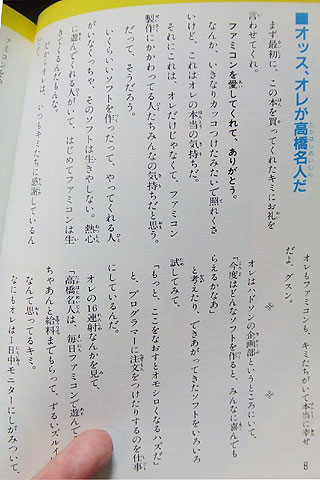 ■オッス、オレが高橋名人だ
まず最初に、この本を買ってくれたキミにお礼を
言わせてくれ。
ファミコンを愛してくれて、ありがとう。
なんか、いきなりカッコつけたみたいで照れくさ
いけど、これはオレの本当の気持ちだ。
それにこれは、オレだけじゃなくて、ファミコン
製作にかかわってる人たちみんなの気持ちだと思う。
だって、そうだろう。
いくらいいソフトを作ったって、やってくれる人
がいなくっちゃ、そのソフトは生きやしない。熱心
に遊んでくれる人がいて、はじめてファミコンは生
きてくるんだもんな。
だからオレは、いつもキミたちに感謝しているん
だよ、グスン。
オレもファミコンも、キミたちがいて本当に幸せ
※ ※
オレはハドソンの企画部というところにいて、
「今度はどんなソフトを作ると、みんなに喜んでも
らえるかなあ」
と考えたり、できあがってきたソフトをいろいろ
試してみて、
「もっと、ここをなおすとオモシロくなるハズだ」
と、プログラマーに注文をつけたりするのを仕事
にしているんだ。
オレの16連射なんかを見て、
「高橋名人は、毎日ファミコンで遊んで、
ちゃあんと給料までもらって、ずるいズルイ
なんて思ってるキミ。
なにもオレは1日中モニターにしがみついて、
8